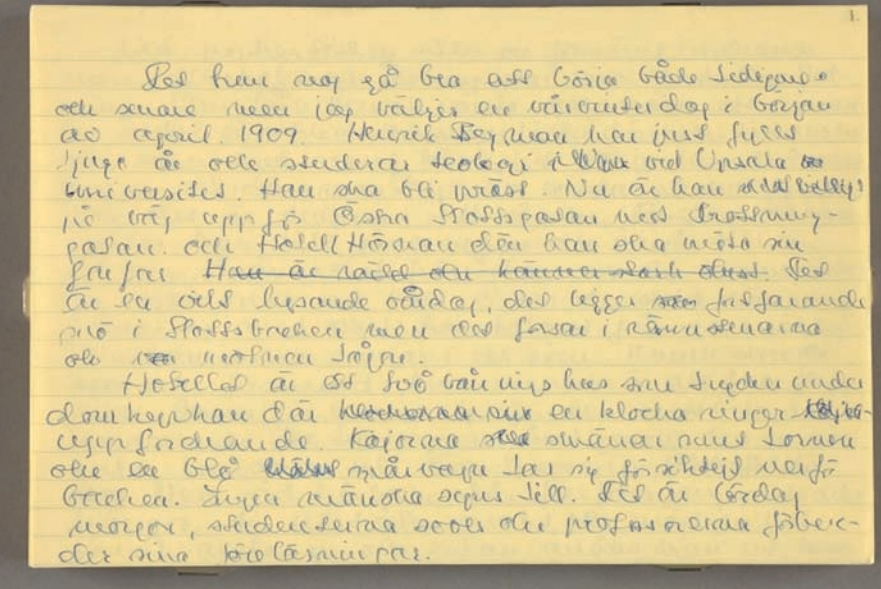 1.
Det kan nog gå bra att börja både tidigare
och senare men jag väljer en vårvinterdag i början
av april 1909. Henrik Bergman har just fyllt
tjugo år och studerar teologi vid Upsala
universitet. Han ska bli präst. Nu är han
på väg upp för Östra Slottsgatan mot Drottning-
gatan och Hotell Hörnan där han ska möta sin
farfar. Han är rädd och känner stark olust. Det
är en vitt lysande vårdag, det ligger fortfarande
snö i Slottsbacken men det forsar i rännstenarna
och molnen tågar.
Hotellet är ett två vånings hus som trycker under
domkyrkan där en klocka ringer
uppfordrande. Kajorna skränar runt tornen
och en blå spårvagn tar sig försiktigt nerför
backen. Ingen mänska syns till. Det är lördag
morgon, studenterna sover och professorerna förbere-
der sina föreläsningar.